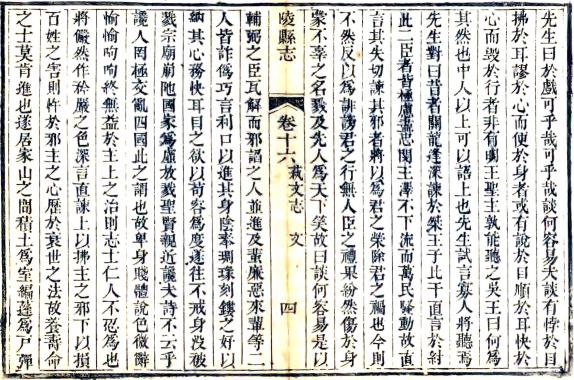 先生曰於戲可乎哉可乎哉談何容易夫談有悖於目
拂於耳謬於心而便於身者或有說於目順於耳快於
心而毀於行者非有明王聖主孰能聽之吳王曰何爲
其然也中人以上可以語上也先生試言寡人將聽焉
先生對曰昔者關龍逢深諫於桀王子比干直言於紂
此二臣者皆極慮盡忠閔主澤不下流而萬民騷動故直
言其失切諫其邪者將以爲君之榮除君之禍也今則
不然反以爲誹謗君之行無人臣之禮果紛然傷於身
蒙不辜之名戮及先人爲天下笑故曰談何容易是以
陵縣志 卷十六 藝文志 文 四
輔弼之臣瓦解而邪諂之人並進及蜚廉惡來輩等二
人皆詐僞巧言利口以進其身陰奉琱瑑刻鏤之好以
納其心務快耳目之欲以苟容爲度遂往不戒身没被
戮宗廟崩阤國家爲虛放戮聖賢親近讒夫詩不云乎
讒人罔極交亂四國此之謂也故卑身賤體說色微辭
愉愉呴呴終無益於主上之治則志士仁人不忍爲也
將儼然作矜嚴之色深言直諫上以拂主之邪下以損
百姓之害則忤於邪主之心歷於衰世之法故養壽命
之士莫肯進也遂居深山之間積土爲室編蓬爲戶彈